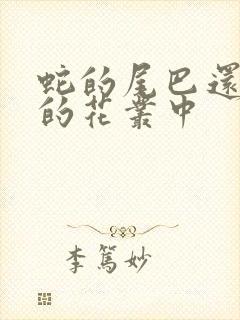 蛇的尾巴還
的花叢中
李篤妙